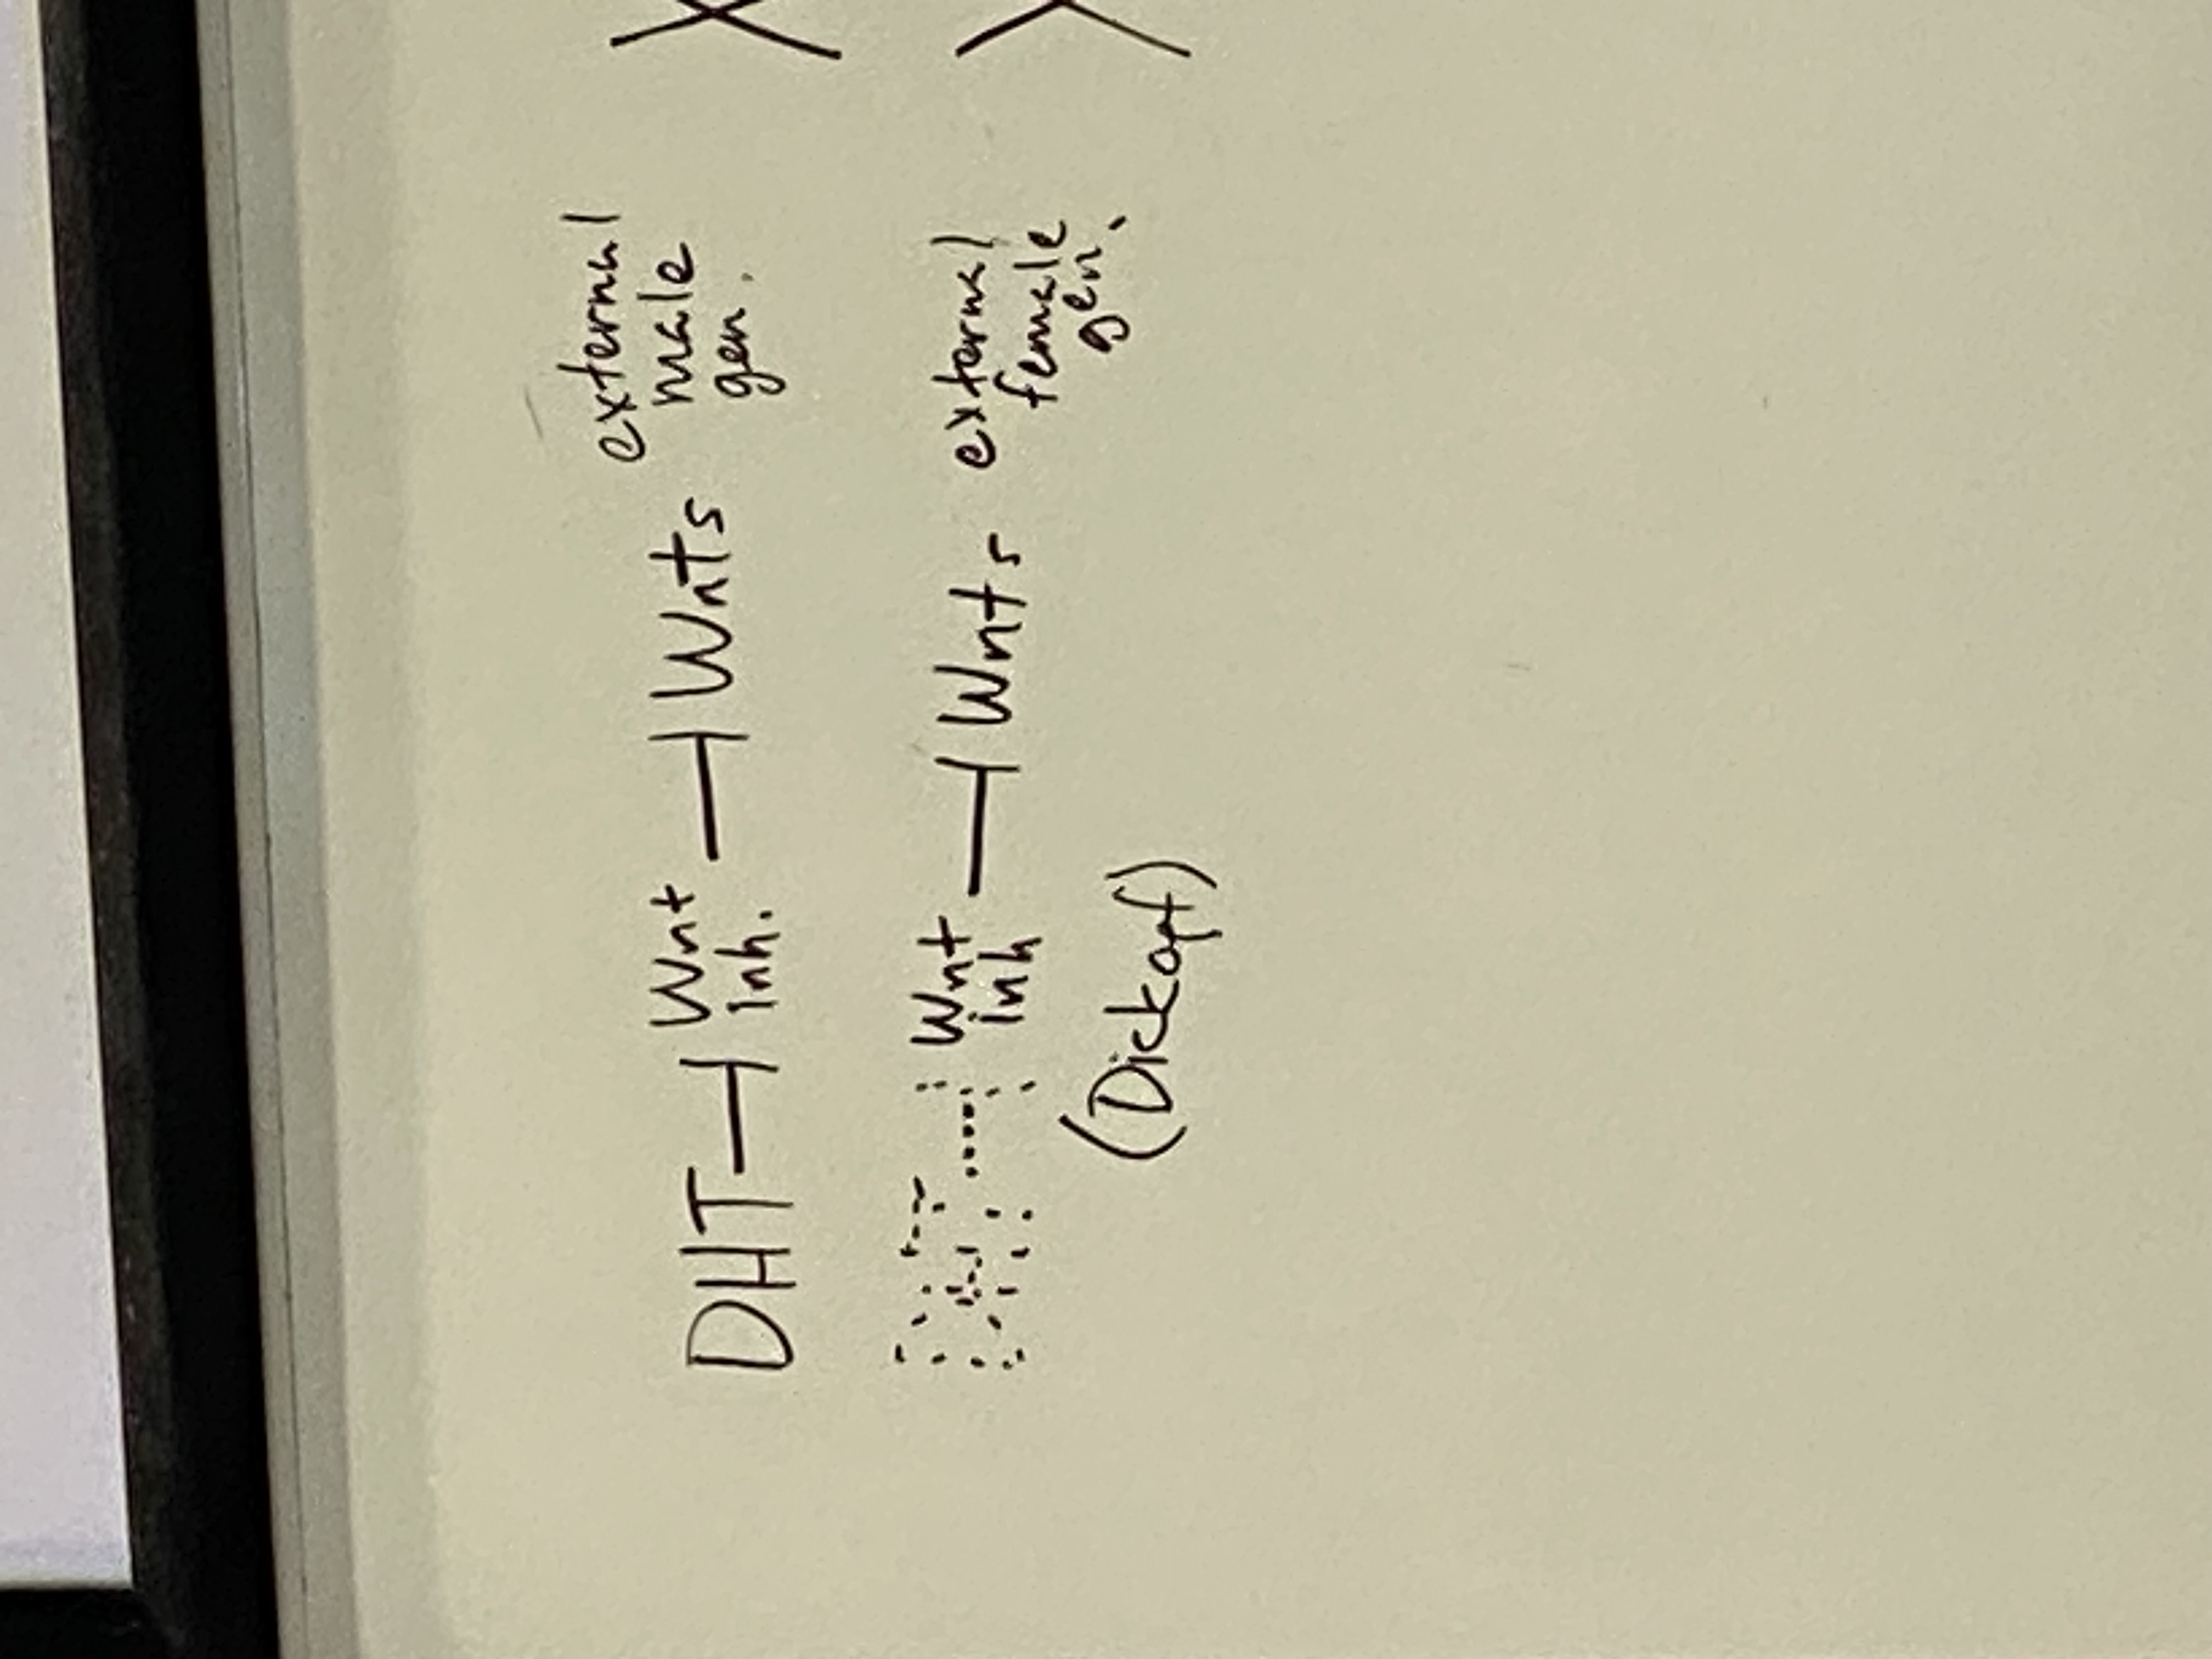 DHT ⊣ Wnt ⊣ Wnts external
inh. male
gen.
DHT ⊣ Wnt ⊣ Wnts external
inh female
gen.
(Dickopf)